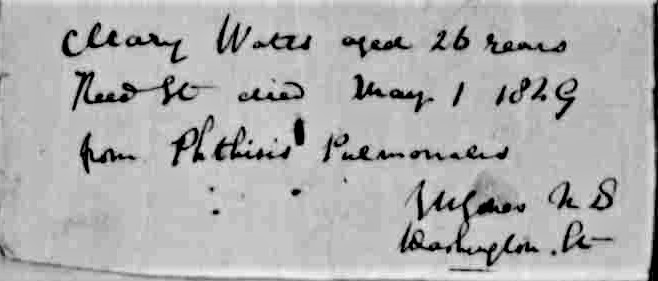 Mary Watts aged 26 years
Reed St died May 1 1849
from Phthisis Pulmonalis
M D
Washington St